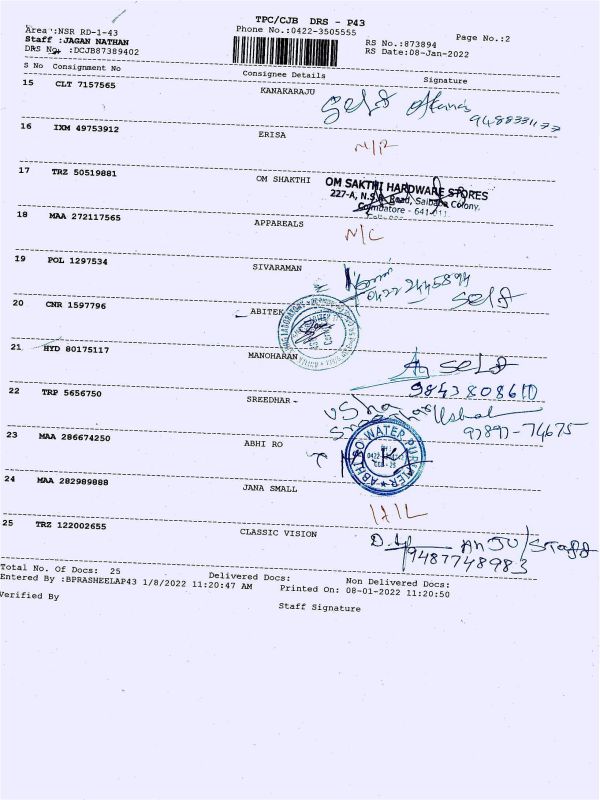 TPC/CJB DRS - P43
Area :NSR RD-1-43 Phone No.:0422-3505555 Page No.:2
Staff :JAGAN NATHAN RS No.:873894
DRS No. :DCJB87389402 RS Date:08-Jan-2022
S No Consignment No Consignee Details Signature
15 CLT 7157565 KANAKARAJU
Self
16 IXM 49753912 ERISA
N/R
17 TRZ 50519881 OM SHAKTHI
OM SAKTHI HARDWARE STORES
227-A, N.S.R. Road, Saibaba Colony,
Coimbatore - 641 011.
18 MAA 272117565 APPAREALS
N/C
19 POL 1297534 SIVARAMAN
Self
20 CNR 1597796 ABITEK
21 HYD 80175117 MANOHARAN
Self
9843808610
22 TRP 5656750 SREEDHAR
Usha
97897-74675
23 MAA 286674250 ABHI RO
ABHI RO WATER PURIFIER
24 MAA 282989888 JANA SMALL
25 TRZ 122002655 CLASSIC VISION
ANJU/Staff
9487748983
Total No. Of Docs: 25 Delivered Docs: Non Delivered Docs:
Entered By :BPRASHEELAP43 1/8/2022 11:20:47 AM Printed On: 08-01-2022 11:20:50
Verified By Staff Signature